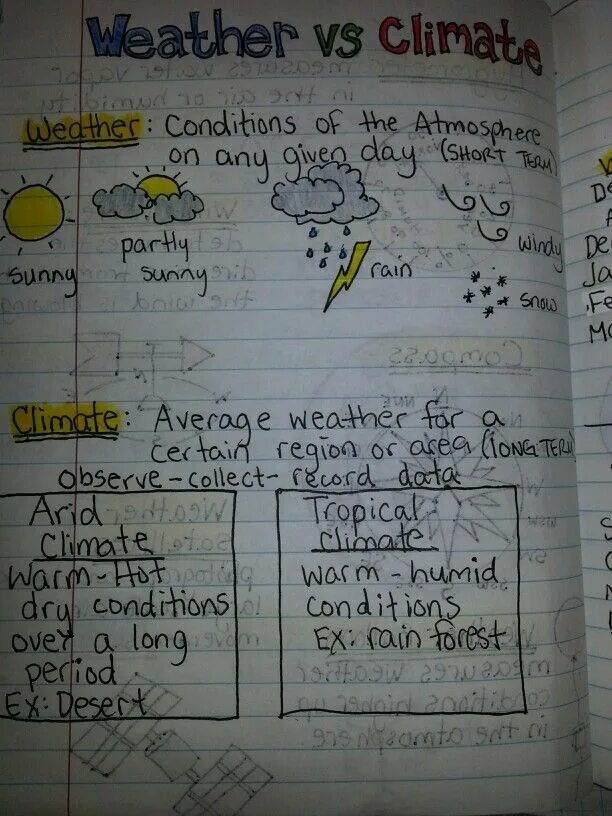 Weather vs Climate
Weather: Conditions of the Atmosphere
on any given day (SHORT TERM)
sunny
partly
sunny
rain
windy
snow
Climate: Average weather for a
certain region or area (LONG TERM)
observe-collect-record data
Arid
Climate
Warm-Hot
dry conditions
over a long
period
EX: Desert
Tropical
climate
warm-humid
conditions
EX: rain forest